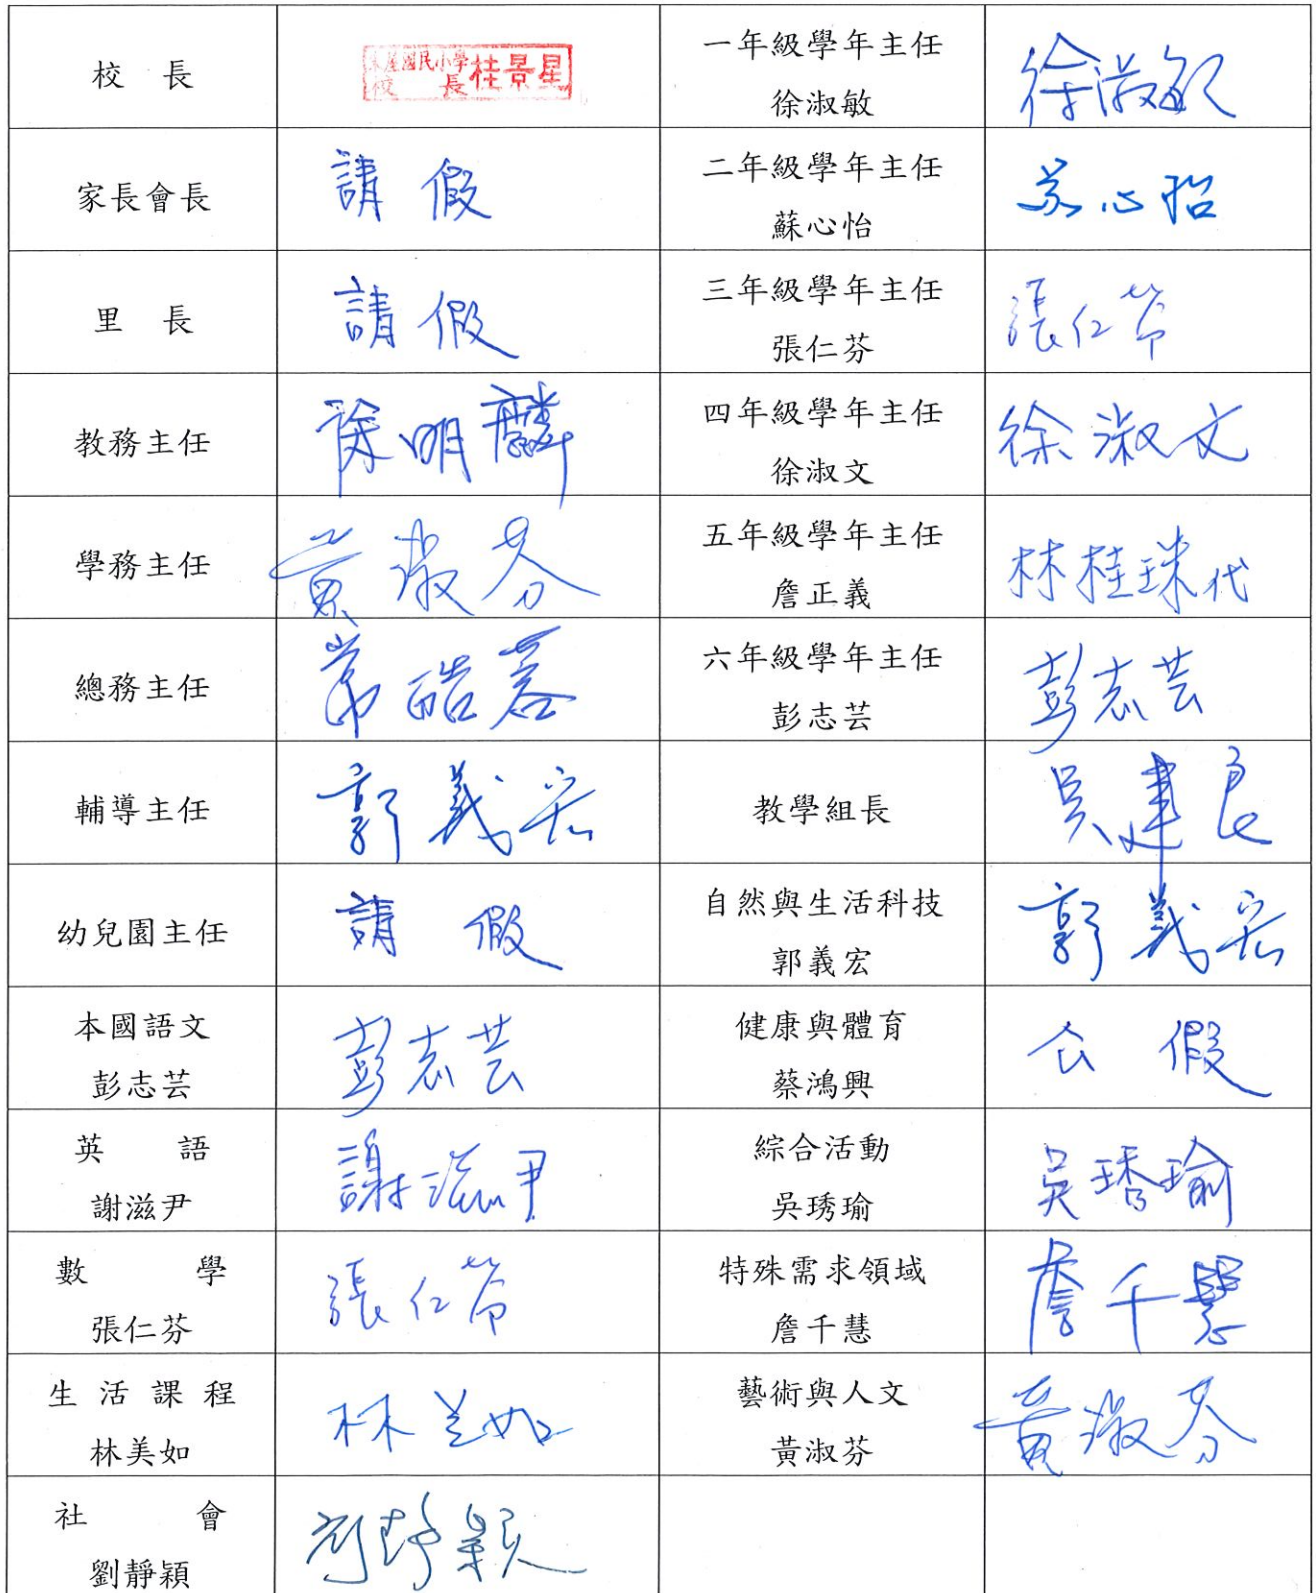 校 長
國民小學
校 長 桂景星
一年級學年主任
徐淑敏
徐淑敏
家長會長
請 假
二年級學年主任
蘇心怡
苏心怡
里 長
請 假
三年級學年主任
張仁芬
張仁芬
教務主任
徐明麟
四年級學年主任
徐淑文
徐淑文
學務主任
黃淑芬
五年級學年主任
詹正義
林桂珠代
總務主任
六年級學年主任
彭志芸
彭志芸
輔導主任
郭義宏
教學組長
吳建良
幼兒園主任
請 假
自然與生活科技
郭義宏
郭義宏
本國語文
彭志芸
彭志芸
健康與體育
蔡鴻興
公 假
英 語
謝滋尹
謝滋尹
綜合活動
吳琇瑜
吳琇瑜
數 學
張仁芬
張仁芬
特殊需求領域
詹千慧
詹千慧
生活課程
林美如
林美如
藝術與人文
黃淑芬
黃淑芬
社 會
劉靜穎
劉靜穎